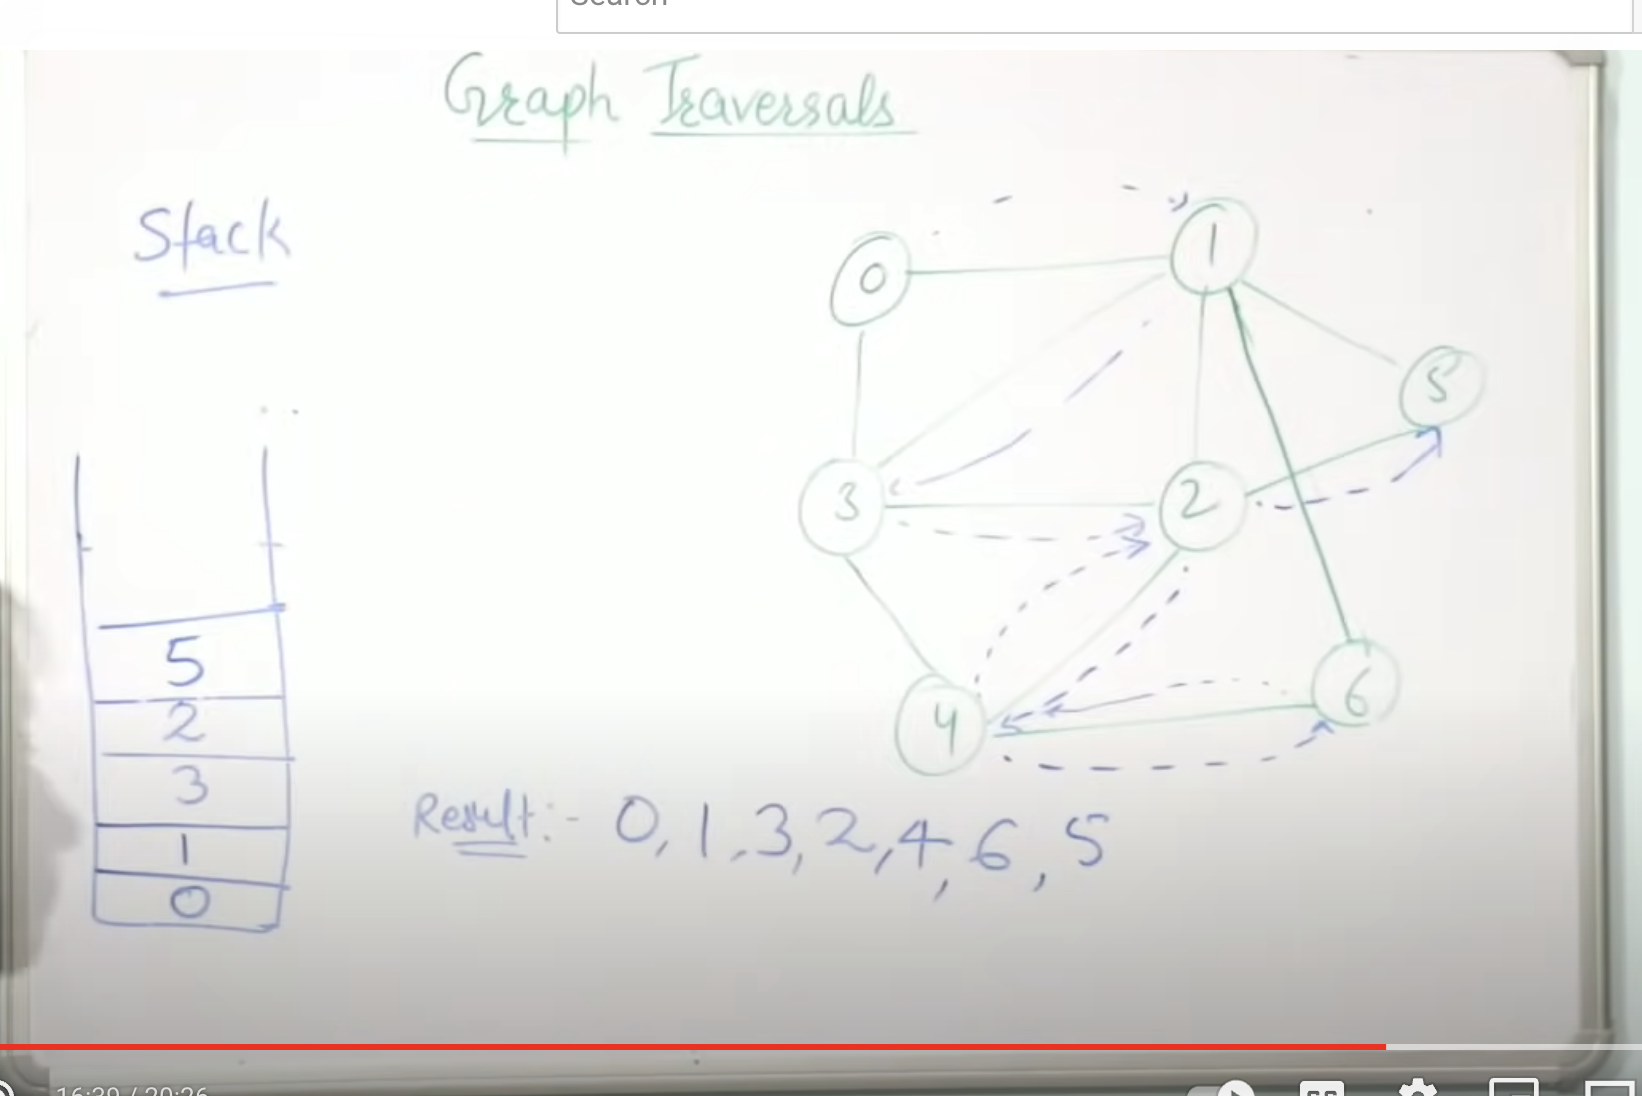 Search
Graph Traversals
Stack
0
1
5
3
2
4
6
5
2
3
1
0
Result:- 0, 1, 3, 2, 4, 6, 5
16:39 / 20:26